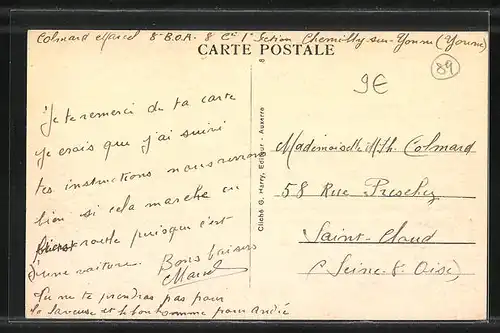 Colmard Marcel 8e B.O.A. 8 Cie 1e Section Chemilly-sur-Yonne (Yonne)
CARTE POSTALE
89
9€
8
Je te remerci de ta carte
je crois que j'ai suivi
tes instructions nous verrons
bien si cela marche en
route puisqu'on c'est
d'une voiture. Bons baisers
Marcel
Tu ne te prendras pas pour
la laveuse et le bonhomme pour André
Cliché G. Harry, Editeur - Auxerre
Mademoiselle M. Th. Colmard
58 Rue
Saint-Cloud
(Seine & Oise)